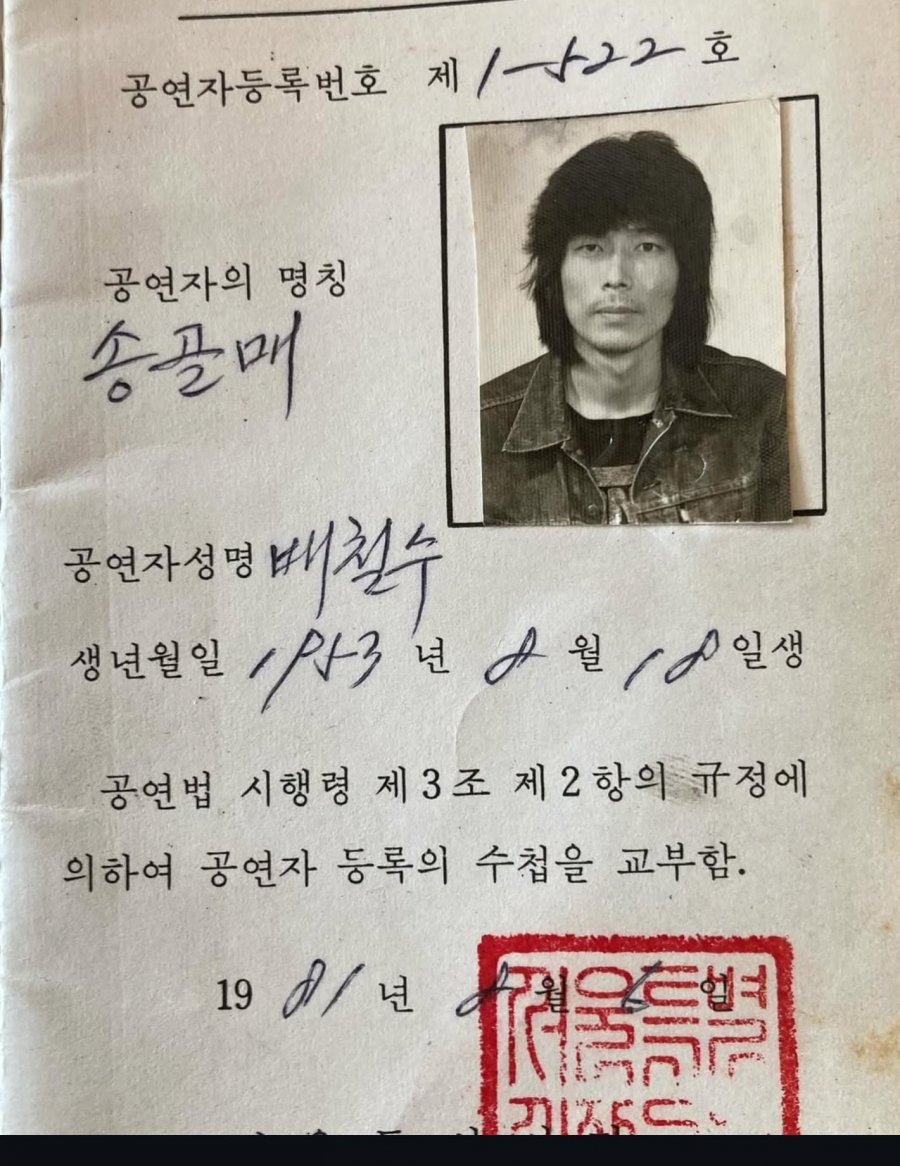 공연자등록번호 제 1-522 호
공연자의 명칭
송골매
공연자성명 배철수
생년월일 1953 년 8 월 18 일생
공연법 시행령 제3조 제2항의 규정에
의하여 공연자 등록의 수첩을 교부함.
1981 년 8 월 6 일
서울특별